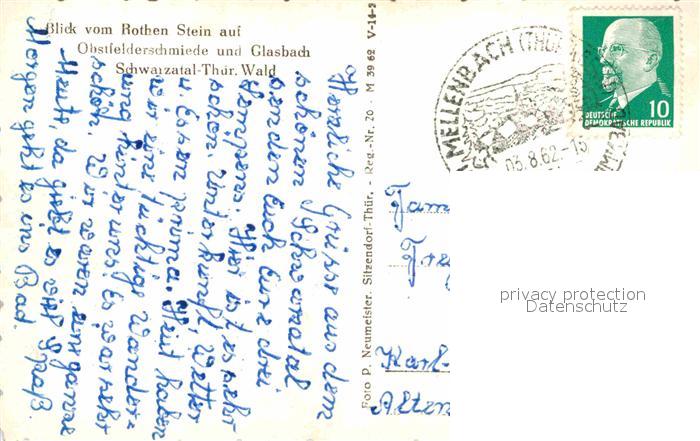 Blick vom Rothen Stein auf
Obstfelderschmiede und Glasbach
Schwarzatal-Thür. Wald
Herzliche Grüsse aus dem
schönen Schwarzatal
senden Euch Eure drei
Hier ist es sehr
schön. Unterkunft, Wetter
u Essen prima. Heut haben
wir eine tüchtige Wander=
ung hinter uns. Es war sehr
schön. Wir waren
Heute, da gibt es viel Spaß.
Morgen geht es ins Bad.
Foto P. Neumeister, Sitzendorf-Thür. - Reg.-Nr. 20 - M 39 62 V-14-2
MELLENBACH (THÜR
03.8.62-15
10
DEUTSCHE
DEMOKRATISCHE REPUBLIK
Fam
Karl-
Alten
privacy protection
Datenschutz